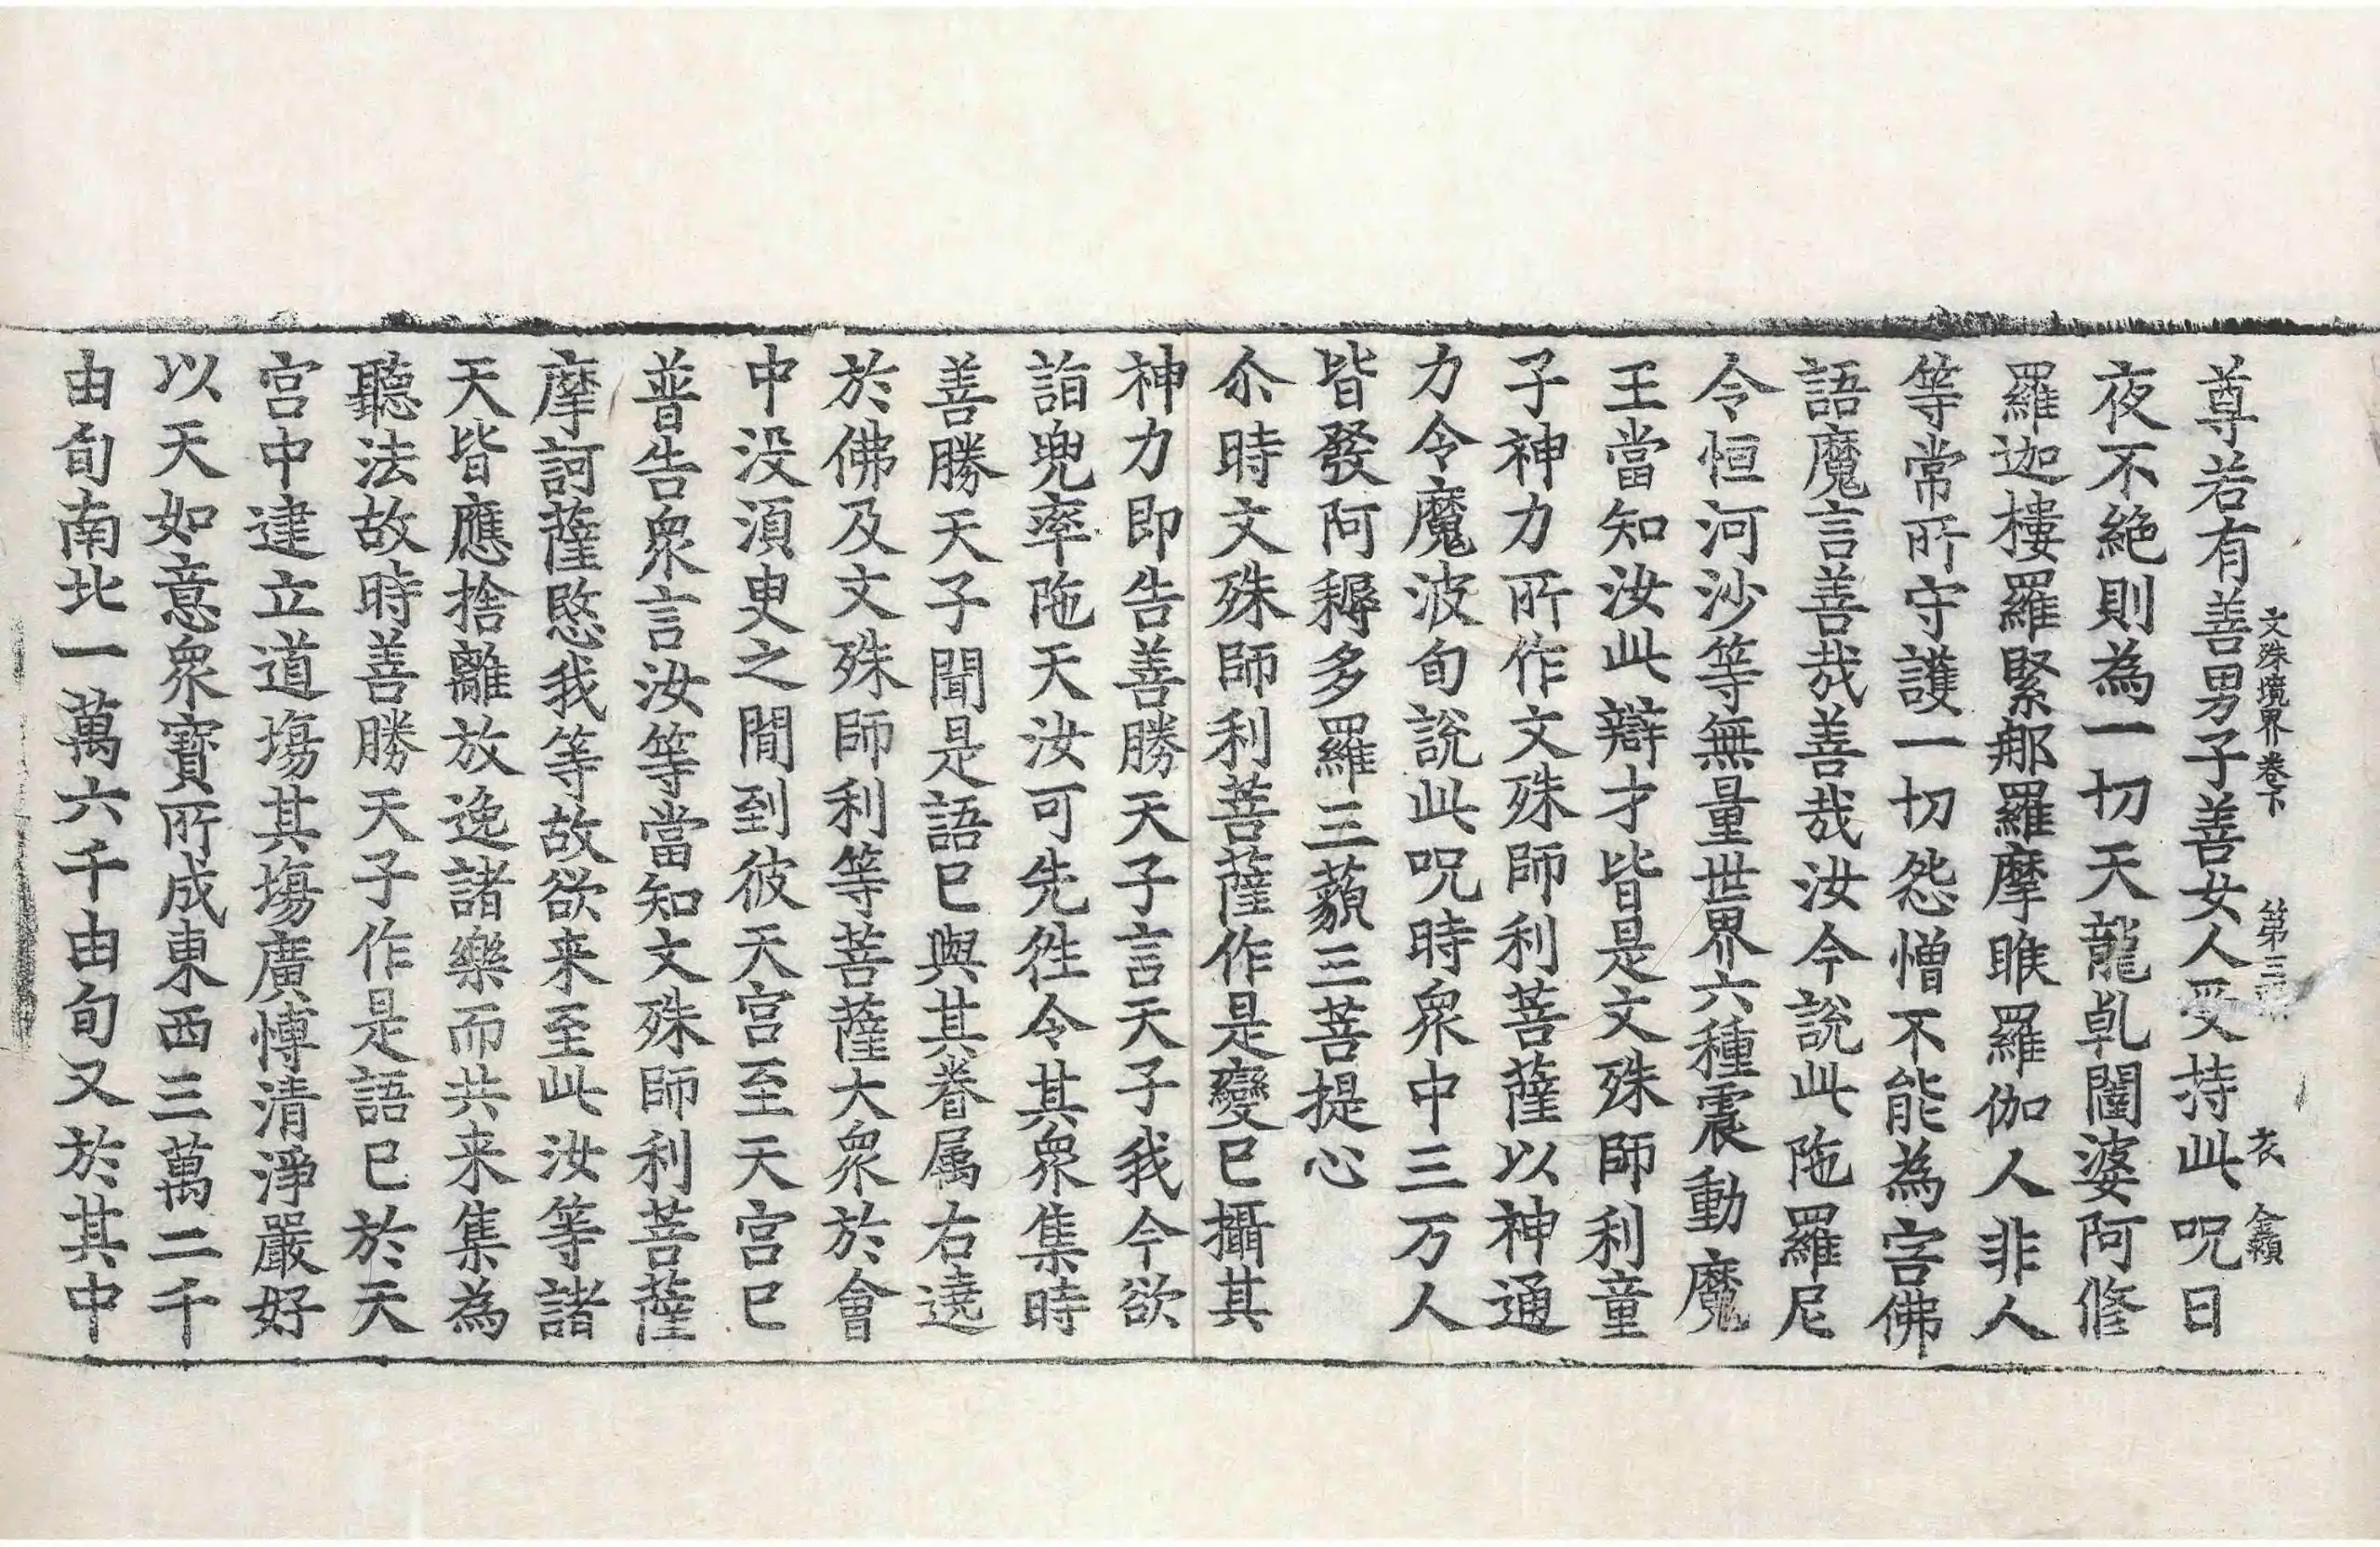 文殊境界卷下 第三張 衣
尊若有善男子善女人受持此呪日
夜不絶則為一切天龍乹闥婆阿修
羅迦樓羅緊那羅摩睺羅伽人非人
等常所守護一切怨憎不能為害佛
語魔言善哉善哉汝今說此陁羅尼
令恒河沙等無量世界六種震動魔
王當知汝此辯才皆是文殊師利童
子神力所作文殊師利菩薩以神通
力令魔波旬說此呪時衆中三万人
皆發阿耨多羅三藐三菩提心
尒時文殊師利菩薩作是變已攝其
神力即告善勝天子言天子我今欲
詣兜率陁天汝可先徃令其衆集時
善勝天子聞是語已與其眷属右遶
於佛及文殊師利等菩薩大衆於會
中没湏臾之間到彼天宫至天宫已
普告衆言汝等當知文殊師利菩薩
摩訶薩愍我等故欲来至此汝等諸
天皆應捨離放逸諸樂而共来集為
聽法故時善勝天子作是語已於天
宫中建立道塲其塲廣愽清淨嚴好
以天如意衆寳所成東西三萬二千
由旬南北一萬六千由旬又於其中